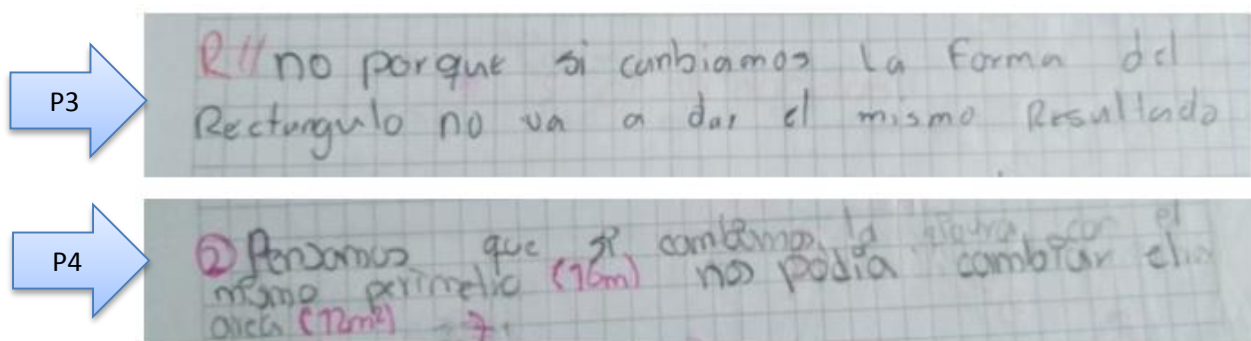 P3
R// no porque si canbiamos la forma del
Rectungulo no va a dar el mismo Resultado
P4
② Pensamos que si cambiamos la figura con el
mismo perimetro (16m) nos podia cambiar el
area (12m²)